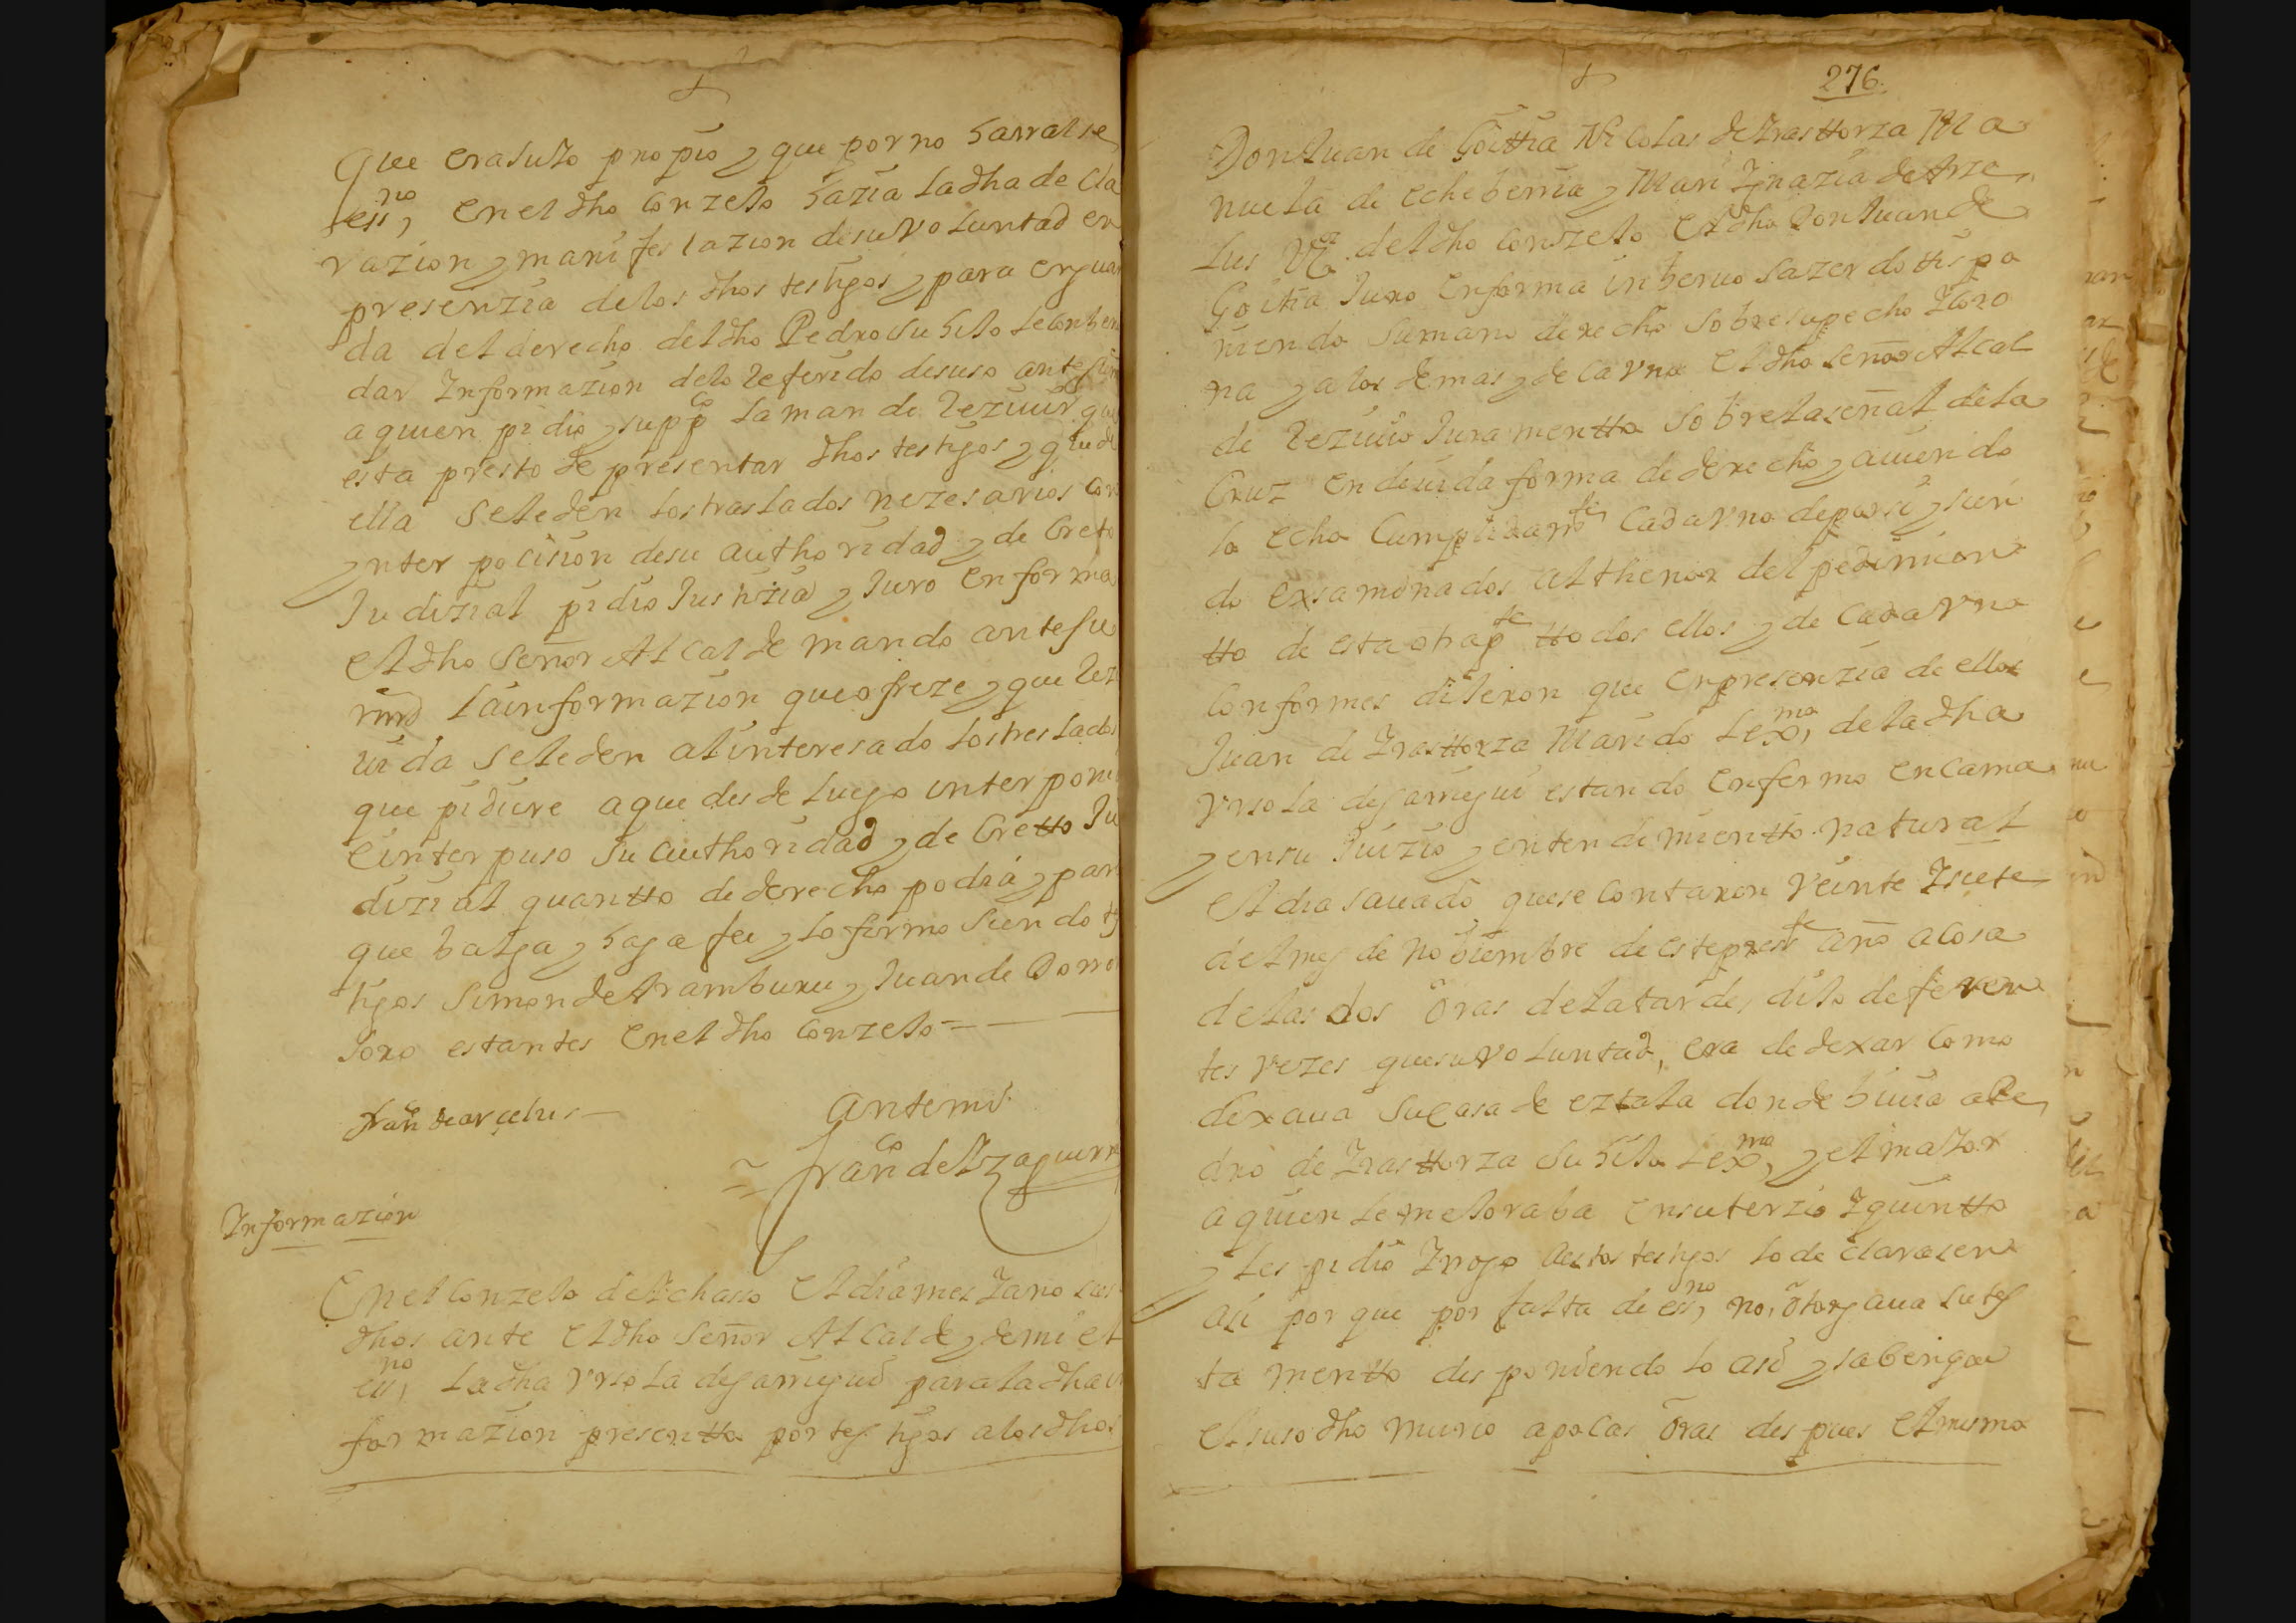 Que era suio propio y que por no hallarse
essno en el dho Conzejo hazia la dha decla
razion y manifestazion de su voluntad en
presenzia de los dhos testigos y para en guar
da del derecho del dho Pedro su hijo le conbiene
dar Informazion de lo referido de suso ante su
a quien pidio y suppco la mande rezivir que
esta presto de presentar dhos testigos y que de
ella se le den los traslados nezesarios con
ynterposision de su authoridad y decreto
Judizial pidio Justizia y Juro en forma
el dho señor Alcalde mando ante su
mrd la informazion que ofreze y que rezi
uida se le den al interesado los treslados
que pidiere a que desde luego interponia
e interpuso su authoridad y decretto Ju
dizial quantto de derecho podia y para
que balga y haga fee y lo firmo siendo tes
tigos Simon de Aramburu y Juan de Dorron
soro estantes en el dho Conzejo =
Franco de arcelus
Ante mi
= Franco de Yzaguirre
Informazion
En el Conzejo de Ichasso el dia mes y año suso
dhos ante el dho señor Alcalde y de mi el
essno la dha Vrsola de Jarruegui para la dha in
formazion presentta por testigos a los dhos
276
Don Juan de Goittia Nicolas de Yrasttorza Ma
nuela de echeberria y Mari Ygnazia de Arze
lus Vezos del dho Conzejo el dho Don Juan de
Goitia Juro en forma in beruo sazerdottis po
niendo su mano derecha sobre su pecho y coro
na y a los demas y de cada vno el dho señor Alcal
de rezivio Juramentto sobre la señal de la
Cruz en deuida forma de derecho y auiendo
lo echo Cumplidamte Cada vno de por si y sien
do examinados al thenor del pedimien
tto de esta otra pte ttodos ellos y de Cada vno
Conformes dijeron que en presenzia de ellos
Juan de Yrasttorza Marido lexmo, de la dha
Vrsola de Jarruegui estando enfermo en cama
y en su Juizio y entendimientto natural
el dia sauado que se contaron Veinte y siete
del mes de nobiembre de este preste año a cosa
de las dos oras de la tarde, dijo diferen
tes vezes que su voluntad, era de dexar Como
dexaua su casa de eztala donde biuia a Pe
dro de Yrasttorza su hijo lexmo, y el maior
a quien le mejoraba en su terzio y quintto
y les pidio y rogo a estos testigos lo declarasen
asi por que por falta de essno, no, otorgaua su tes
tamentto disponiendo lo asi y saben que
el suso dho murio a pocas oras despues el mismo